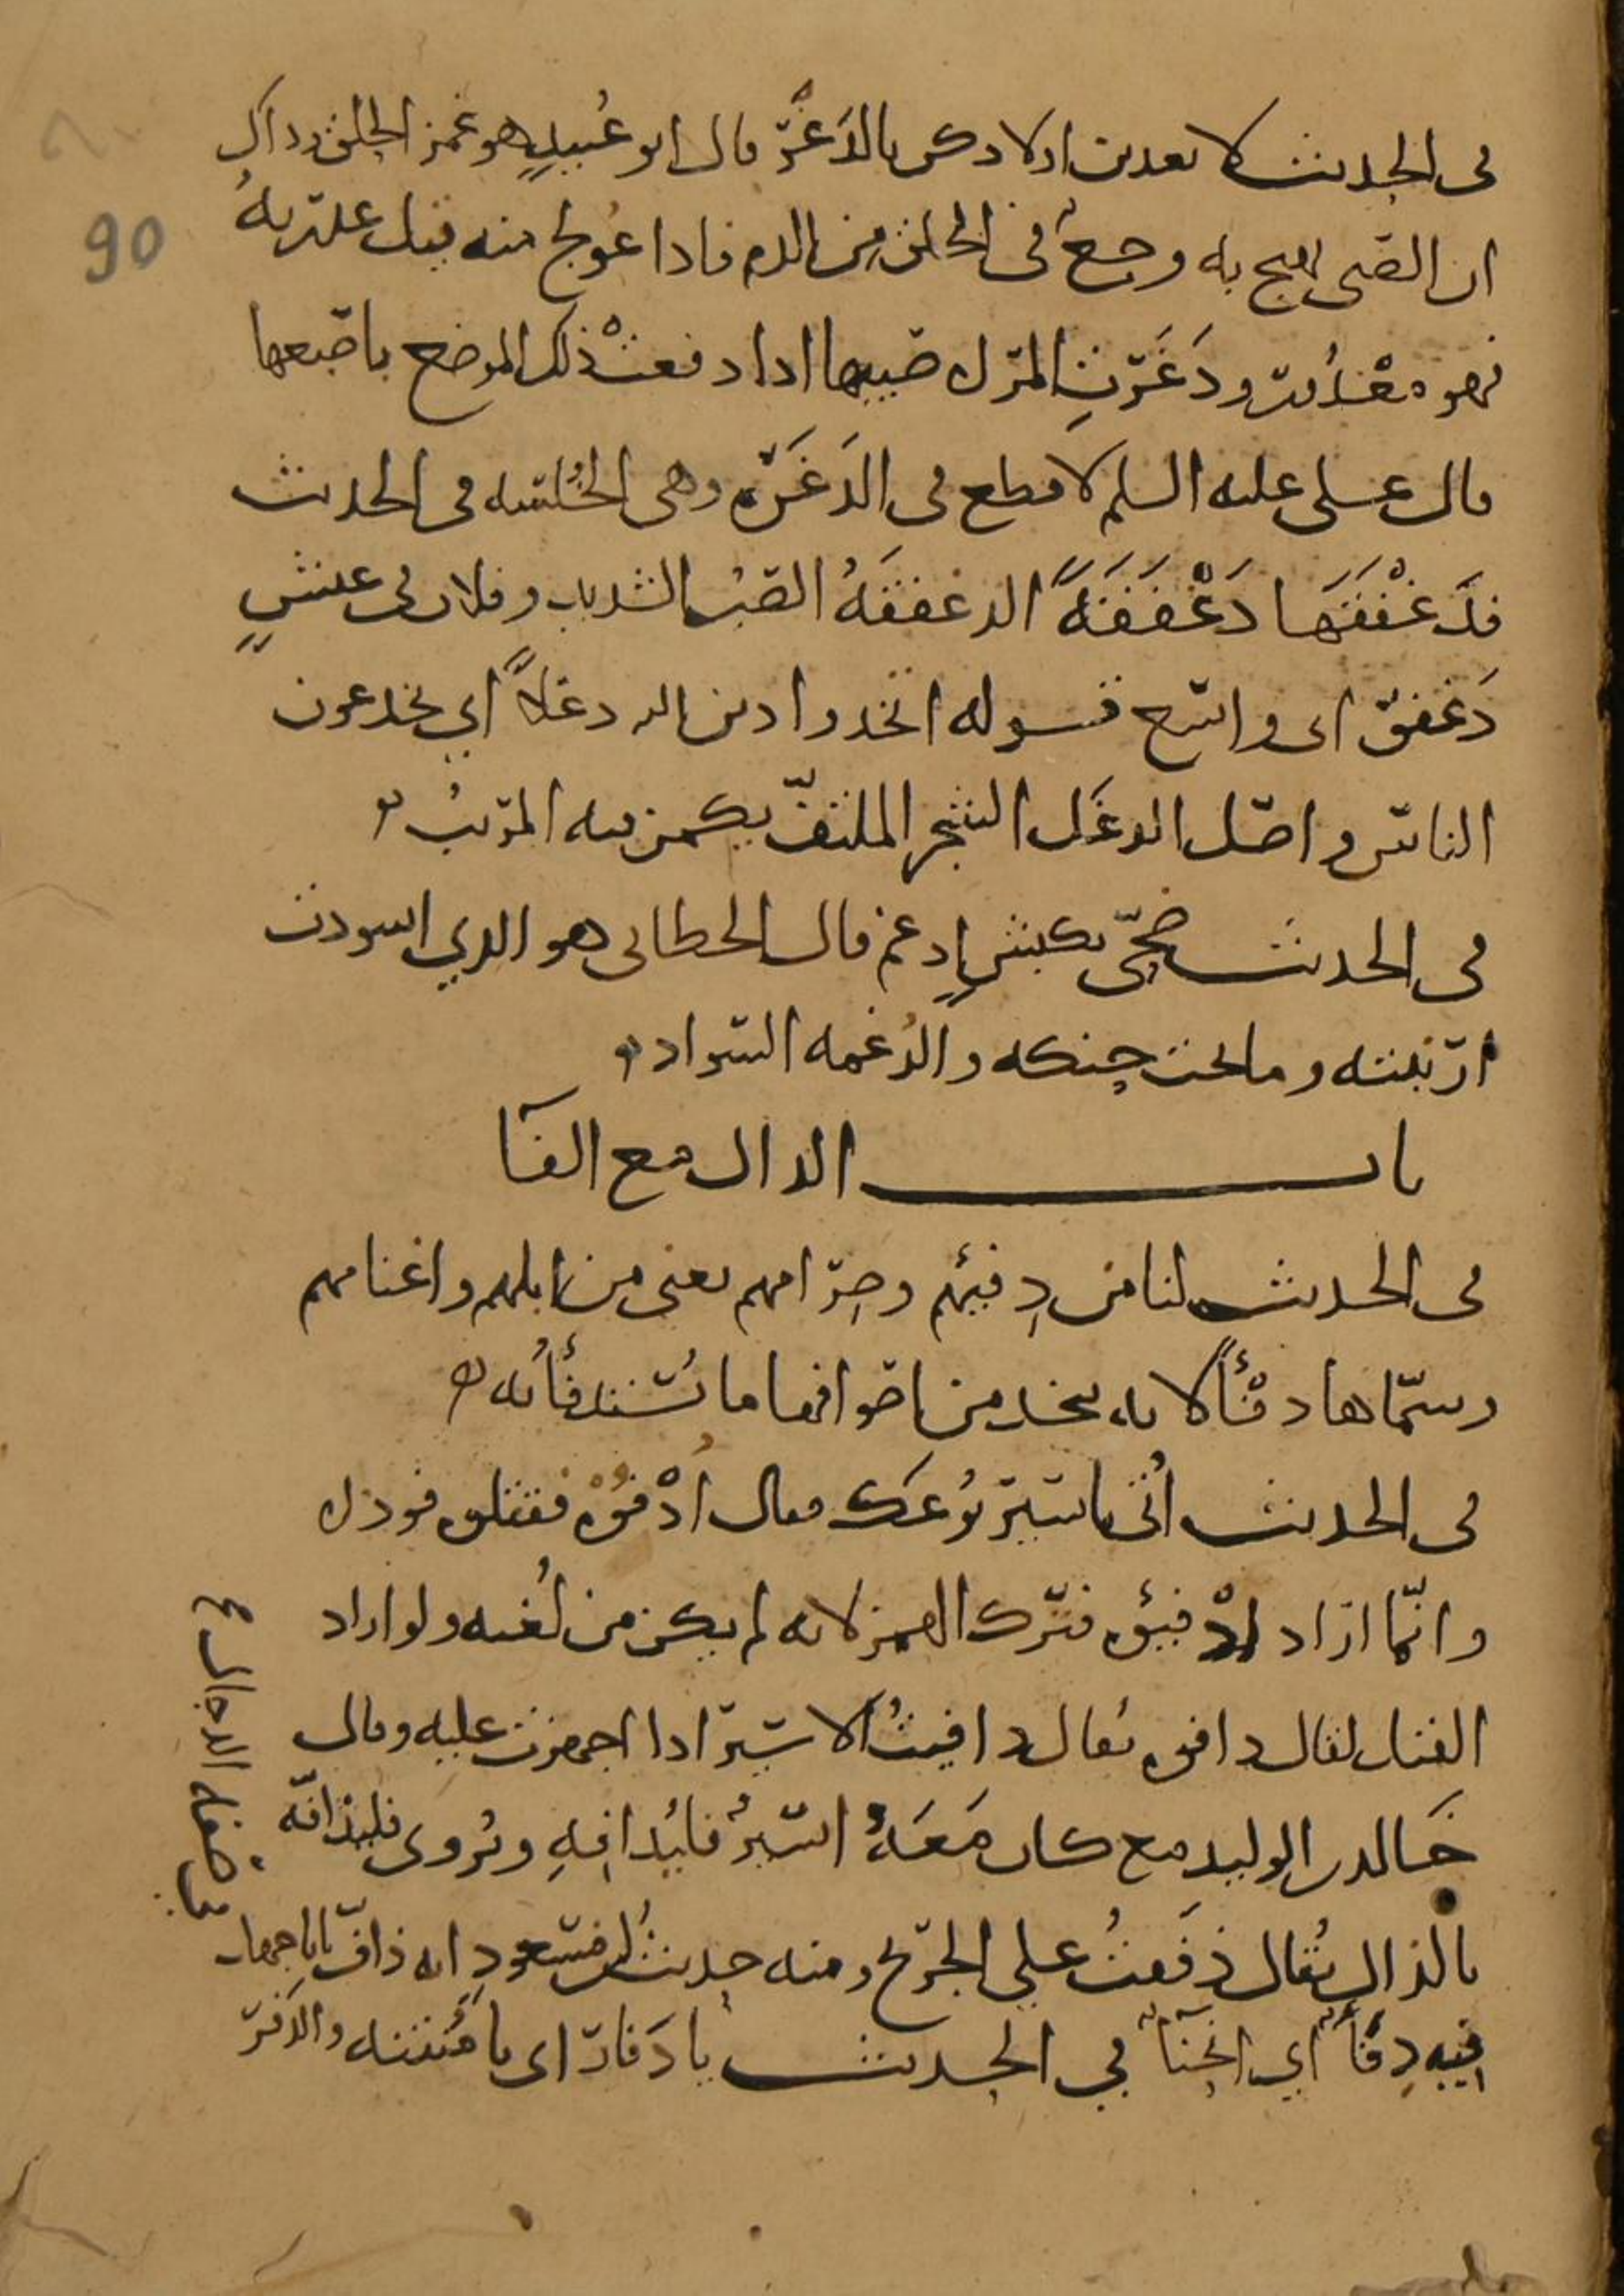 في الحديث لا تعذبن اولادكن بالدَغْرِ قال ابو عُبيدٍ هو غمز الحلق وذاك
ان الصبي يهيج به وجعٌ في الحلق من الدم فاذا عُولج منه قيل عذرته
فهو مَعْذُور ودَغَرَتِ المرأة صبيها اذا دفعتْ ذلك الموضع باصبعها
قال على عليه السلم لا قطع في الدَغْرَة وهي الخُلسه في الحديث
فدَغْفَقَها دَغْفَقَةً الدغفقَهُ الصبُ الشديد وفلان في عيشٍ
دَغفق اى واسع قوله اتخذوا دين الله دغلاً اي يخدعون
الناس واصل الدغَل الشجر الملتفّ يكمن فيه المريبُ
في الحديث ضحّى بكبشٍ ادغم قال الخطابى هو الذي اسودت
ارنبته وما تحت حنكه والدُغمه السواد
باب الدال مع الفآ
في الحديث لنا من دِفئِهم وصِرامهم يعنى من ابلهم واغنامهم
وسمّاها دفْئًا لانه يتخذ من اصوافها ما يُستدفأُ به
في الحديث أُتى باسير يُوعَك فقال أدْفُوْه فقتلوه فوداه
وانّما اراد ادْفِئوه فترك الهمز لانه لم يكن من لُغته ولو اراد
القتل لقال دافوه يُقال دافيتُ الاسير اذا اجهزت عليه وقال
خالد بن الوليد من كان مَعَهُ اسيرٌ فليُدافِهِ ويُروى فليذافّه
بالذال يُقال ذفَفتُ على الجريح ومنه حديث ابن مسعود انه ذافّ ابا جهل
فيه دِفَأٌ اي انحِنآءٌ في الحديث يا دَفارِ اى يا مُنتنه والدَفر